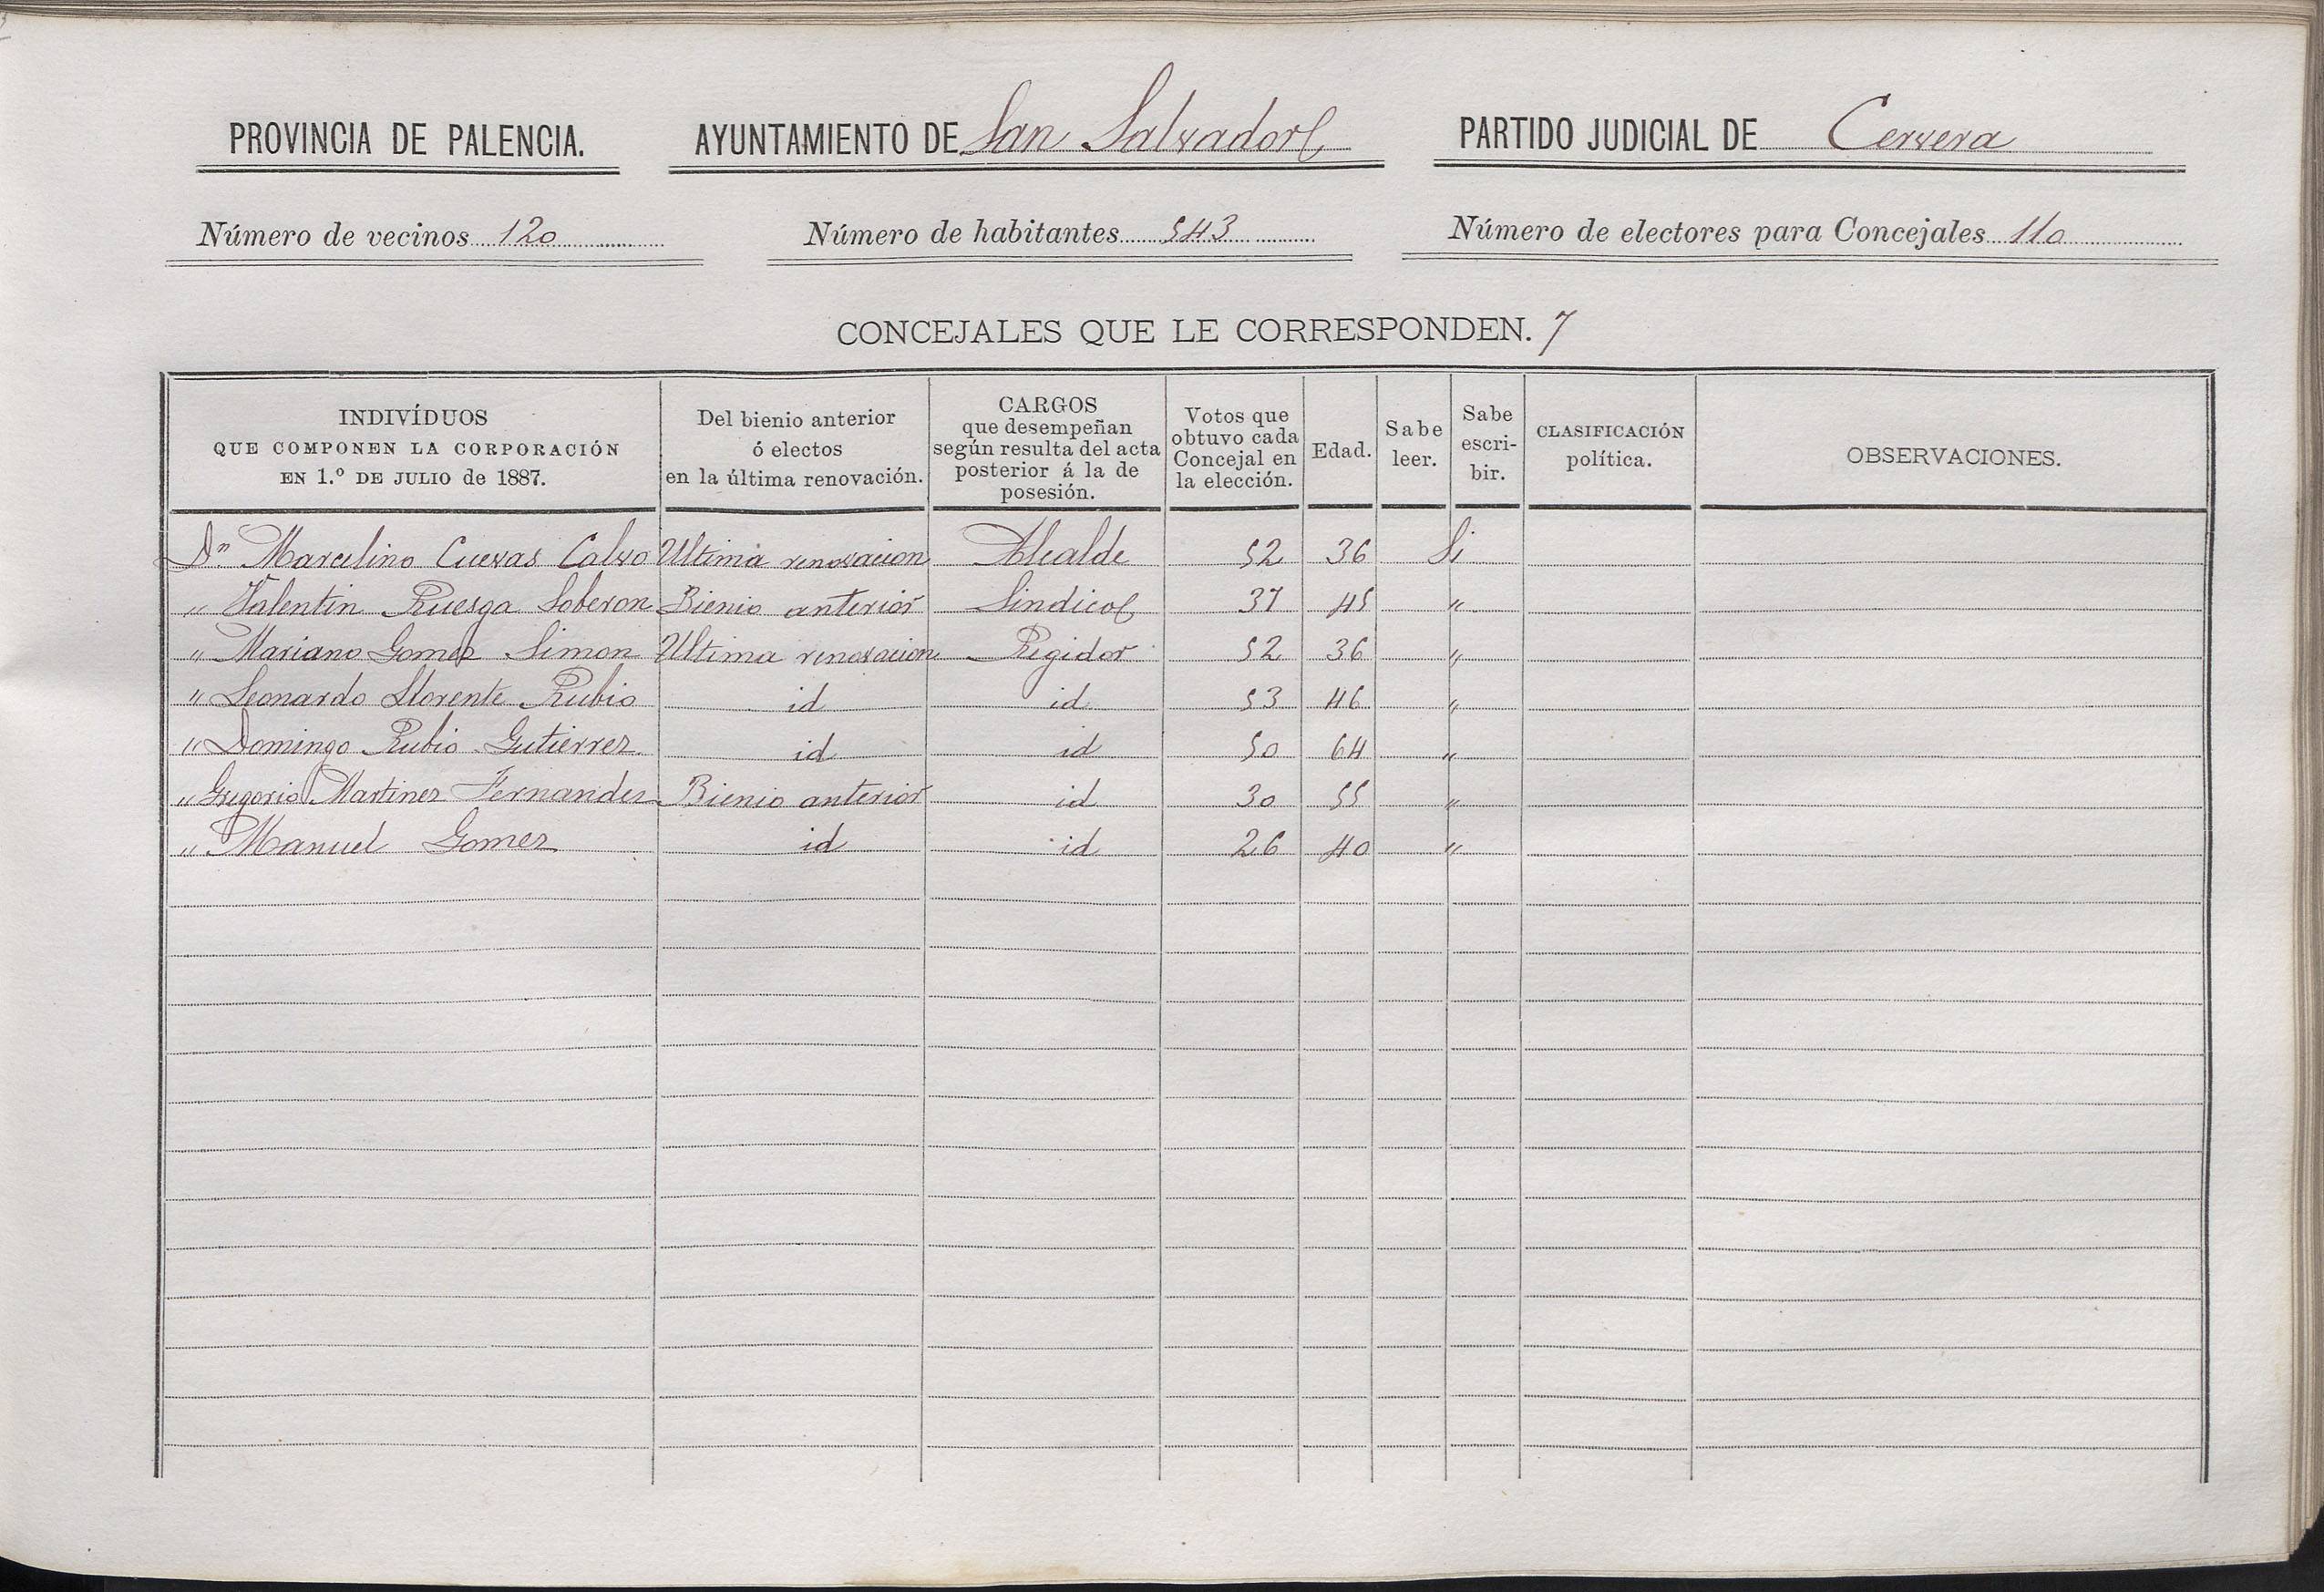 PROVINCIA DE PALENCIA. AYUNTAMIENTO DE San Salvador PARTIDO JUDICIAL DE Cervera
Número de vecinos 120 Número de habitantes 543 Número de electores para Concejales 110
CONCEJALES QUE LE CORRESPONDEN. 7
INDIVÍDUOS
QUE COMPONEN LA CORPORACIÓN
EN 1.º DE JULIO de 1887.
Del bienio anterior
ó electos
en la última renovación.
CARGOS
que desempeñan
según resulta del acta
posterior á la de
posesión.
Votos que
obtuvo cada
Concejal en
la elección.
Edad.
Sabe
leer.
Sabe
escri-
bir.
CLASIFICACIÓN
política.
OBSERVACIONES.
Dn Marcelino Cuevas Calvo Ultima renovacion Alcalde 52 36 Si
" Valentin Ruesga Soberon Bienio anterior Sindico 37 45 "
" Mariano Gomez Simon Ultima renovacion Regidor 52 36 "
" Leonardo Llorente Rubio id id 53 46 "
" Domingo Rubio Gutierrez id id 50 64 "
" Gregorio Martinez Fernandez Bienio anterior id 30 55 "
" Manuel Gomez id id 26 40 "